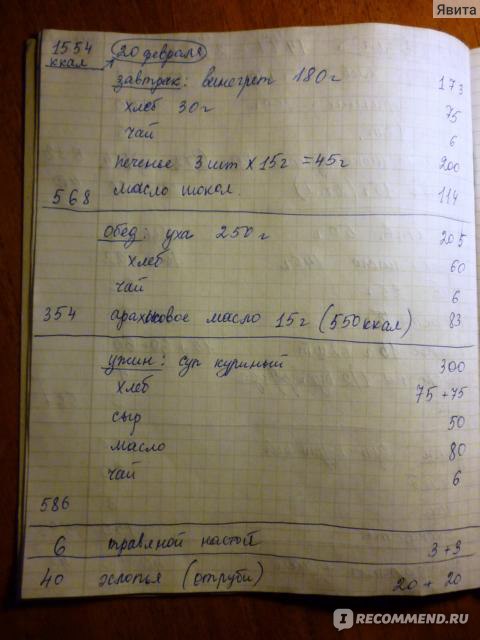 Явита
1554 20 февраля
ккал
завтрак: винегрет 180г 173
хлеб 30г 75
чай 6
печенье 3 шт х 15г = 45г 200
568 масло шокол. 114
обед: уха 250г 205
хлеб 60
чай 6
354 арахисовое масло 15г (550 ккал) 83
ужин: суп куриный 300
хлеб 75+75
сыр 50
масло 80
чай 6
586
6 травяной настой 3+3
40 хлопья (отруби) 20+20
IRECOMMEND.RU